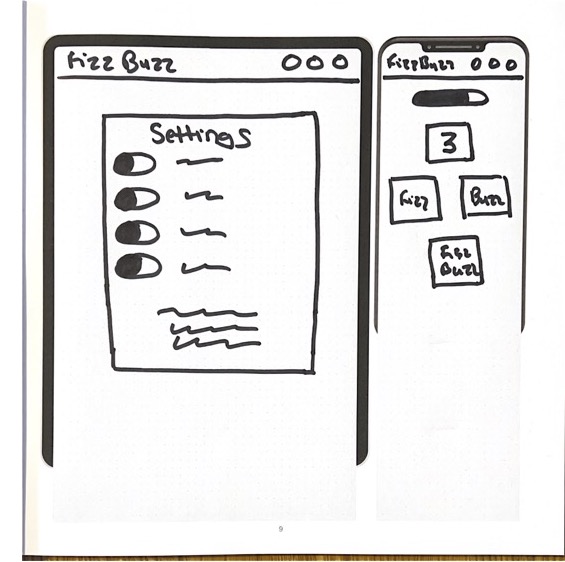 Fizz Buzz
Settings
FizzBuzz
3
Fizz
Buzz
Fizz
Buzz
9